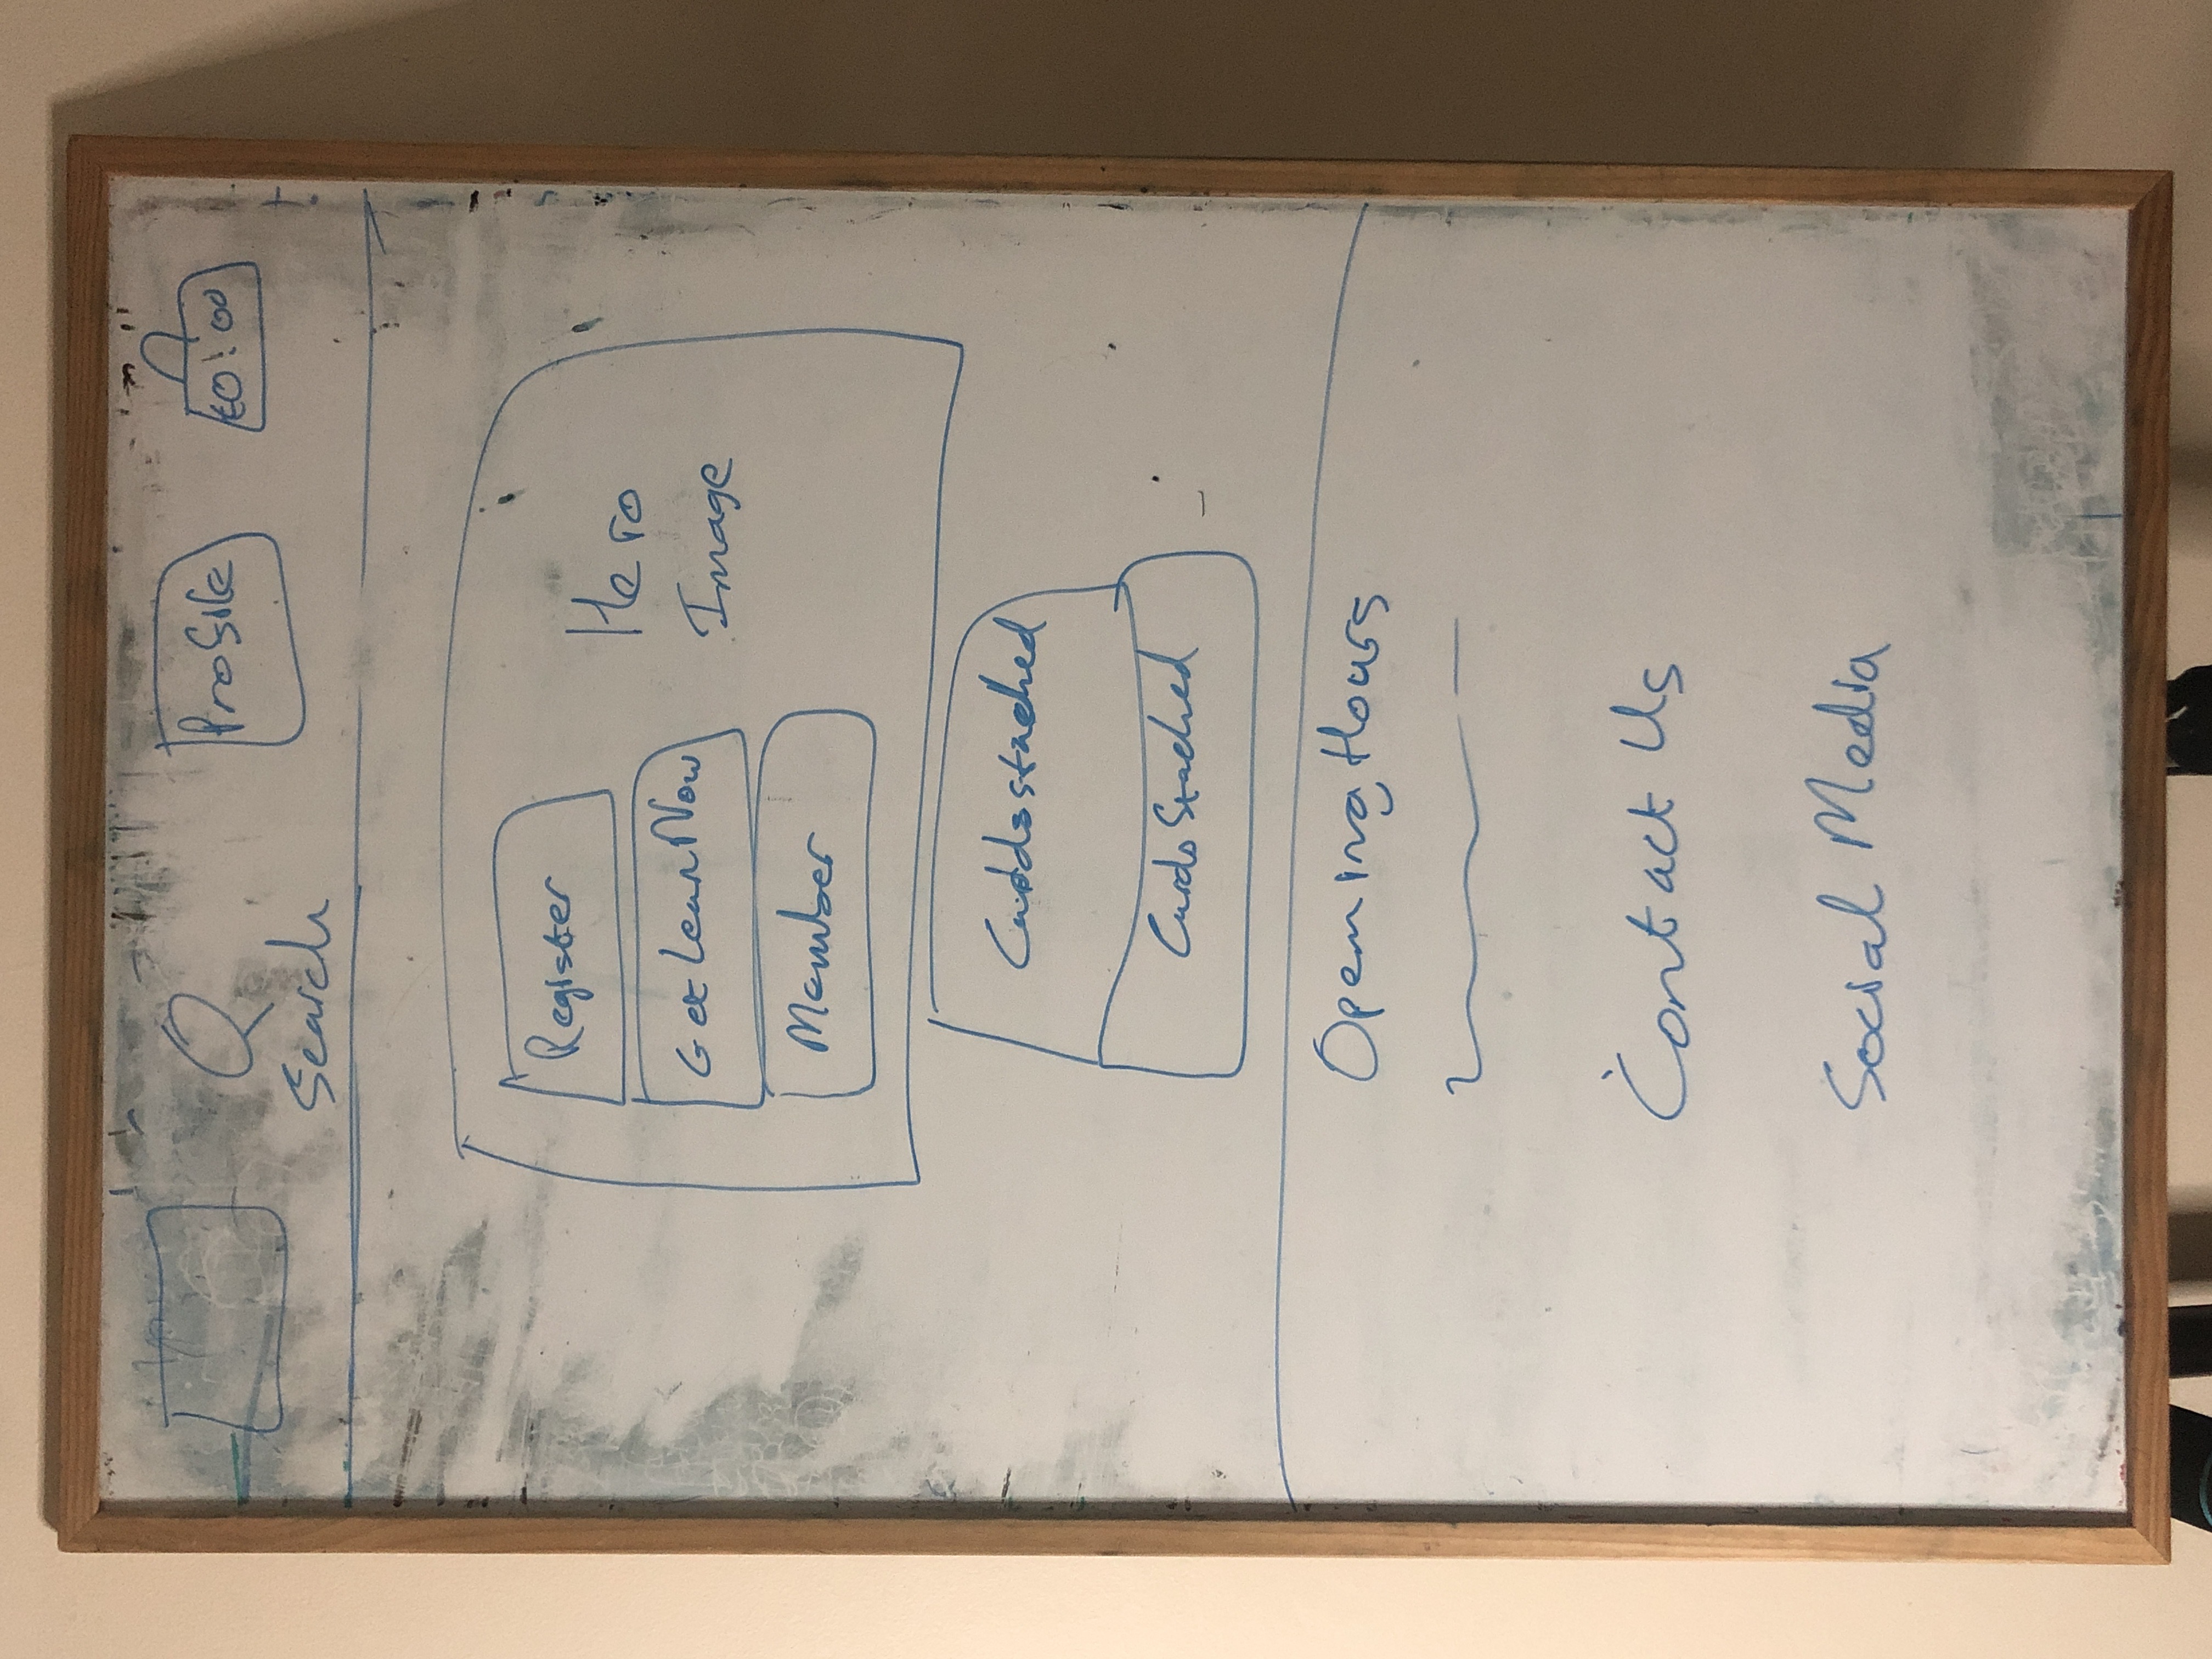 Search
Profile
€0:00
Register
Get Lean Now
Member
Hero
Image
Cards stacked
Cards Stacked
Opening Hours
Contact Us
Social Media